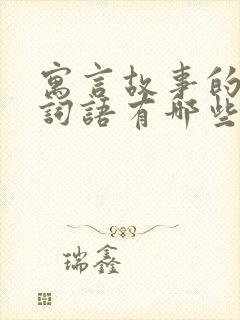 寓言故事的
詞語有哪些
瑞鑫